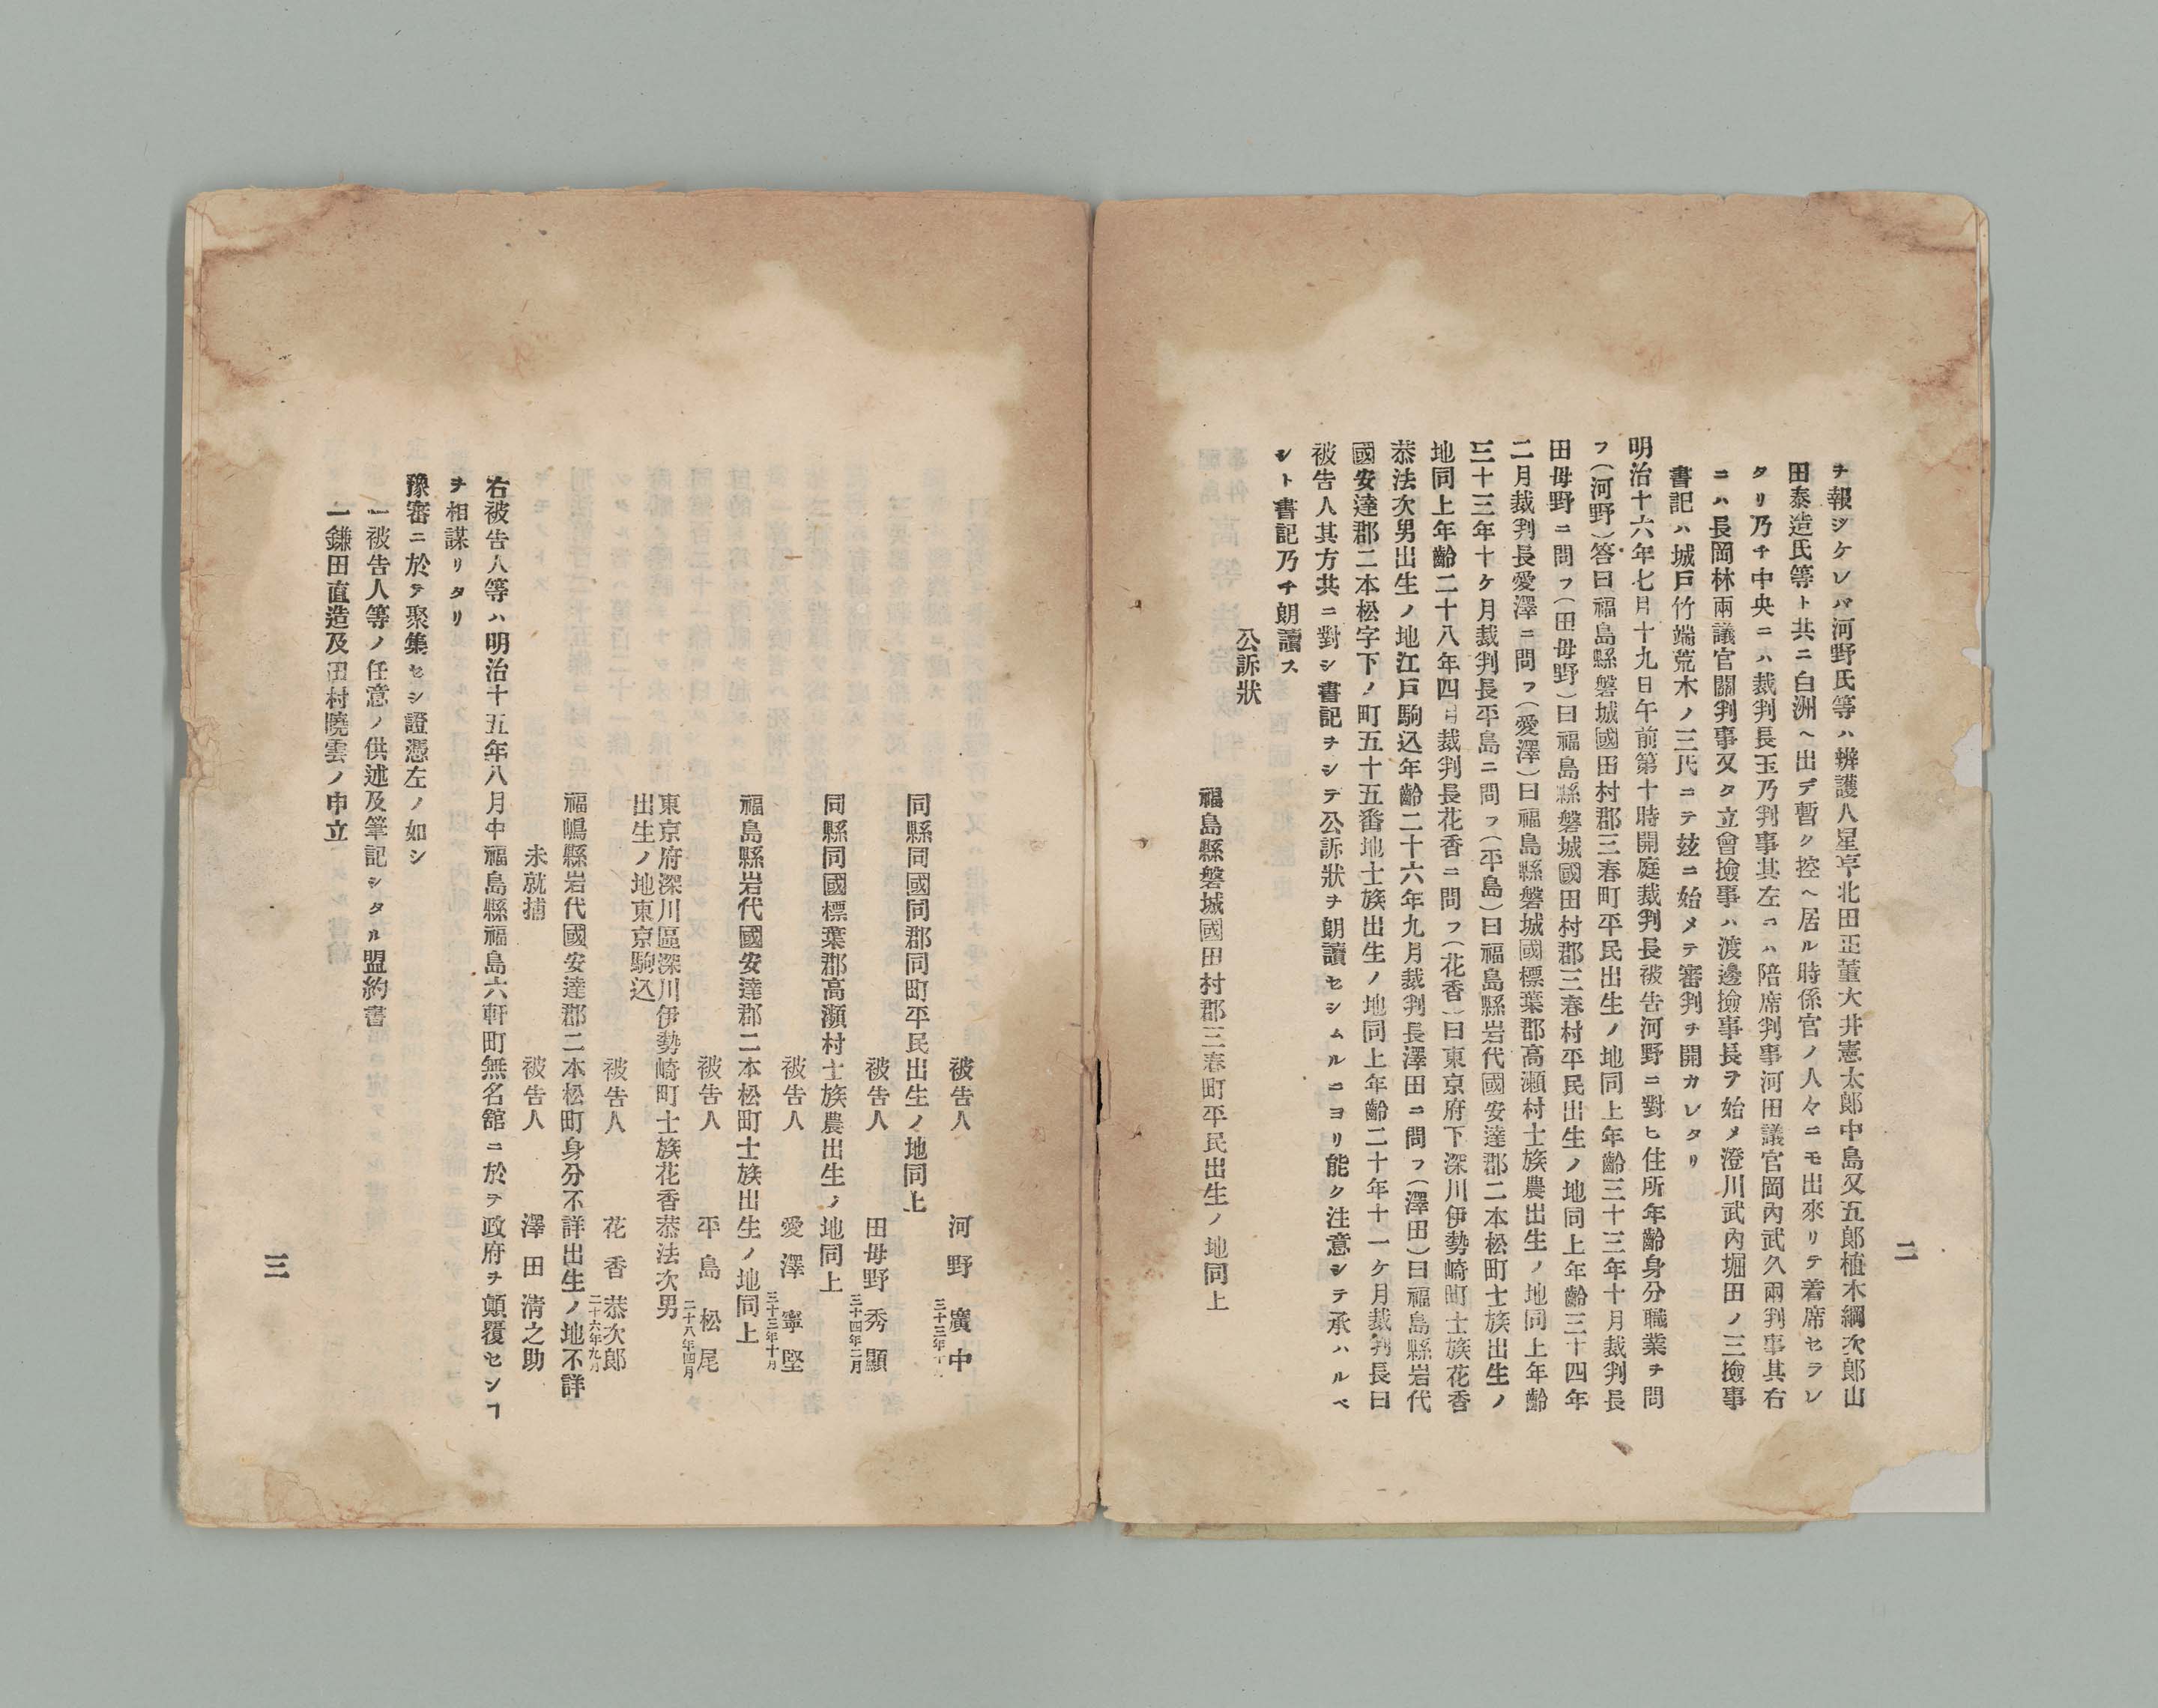 二
ヲ報シケレバ河野氏等ハ辨護人星亨北田正董大井憲太郎中島又五郎植木綱次郎山
田泰造氏等ト共ニ白洲ヘ出デ暫ク控ヘ居ル時係官ノ人々ニモ出來リテ着席セラレ
タリ乃チ中央ニハ裁判長玉乃判事其左ニハ陪席判事河田議官岡內武久兩判事其右
ニハ長岡林兩議官關判事又タ立會撿事ハ渡邊撿事長ヲ始メ澄川武內堀田ノ三撿事
書記ハ城戸竹端荒木ノ三氏ニテ玆ニ始メテ審判ヲ開カレタリ
明治十六年七月十九日午前第十時開庭裁判長被告河野ニ對ヒ住所年齡身分職業ヲ問
フ(河野)答曰福島縣磐城國田村郡三春町平民出生ノ地同上年齡三十三年十月裁判長
田母野ニ問フ(田母野)曰福島縣磐城國田村郡三春村平民出生ノ地同上年齡三十四年
二月裁判長愛澤ニ問フ(愛澤)曰福島縣磐城國標葉郡高瀬村士族農出生ノ地同上年齡
三十三年十ケ月裁判長平島ニ問フ(平島)曰福島縣岩代國安達郡二本松町士族出生ノ
地同上年齡二十八年四月裁判長花香ニ問フ(花香)曰東京府下深川伊勢崎町士族花香
恭法次男出生ノ地江戸駒込年齡二十六年九月裁判長澤田ニ問フ(澤田)曰福島縣岩代
國安達郡二本松字下ノ町五十五番地士族出生ノ地同上年齡二十年十一ケ月裁判長曰
被告人其方共ニ對シ書記ヲシテ公訴狀ヲ朗讀セシムルニヨリ能ク注意シテ承ハルベ
シト書記乃チ朗讀ス
公訴狀
福島縣磐城國田村郡三春町平民出生ノ地同上
被告人 河野廣中
三十三年十
同縣同國同郡同町平民出生ノ地同上
被告人 田母野秀顯
三十四年二月
同縣同國標葉郡高瀬村士族農出生ノ地同上
被告人 愛澤寧堅
三十三年十月
福島縣岩代國安達郡二本松町士族出生ノ地同上
被告人 平島松尾
二十八年四月
東京府深川區深川伊勢崎町士族花香恭法次男
出生ノ地東京駒込
被告人 花香恭次郎
二十六年九月
福嶋縣岩代國安達郡二本松町身分不詳出生ノ地不詳
未就捕 被告人 澤田淸之助
右被告人等ハ明治十五年八月中福島縣福島六軒町無名舘ニ於テ政府ヲ顚覆センヿ
ヲ相謀リタリ
豫審ニ於テ聚集セシ證憑左ノ如シ
一被告人等ノ任意ノ供述及筆記シタル盟約書
一鎌田直造及田村曉雲ノ申立
三